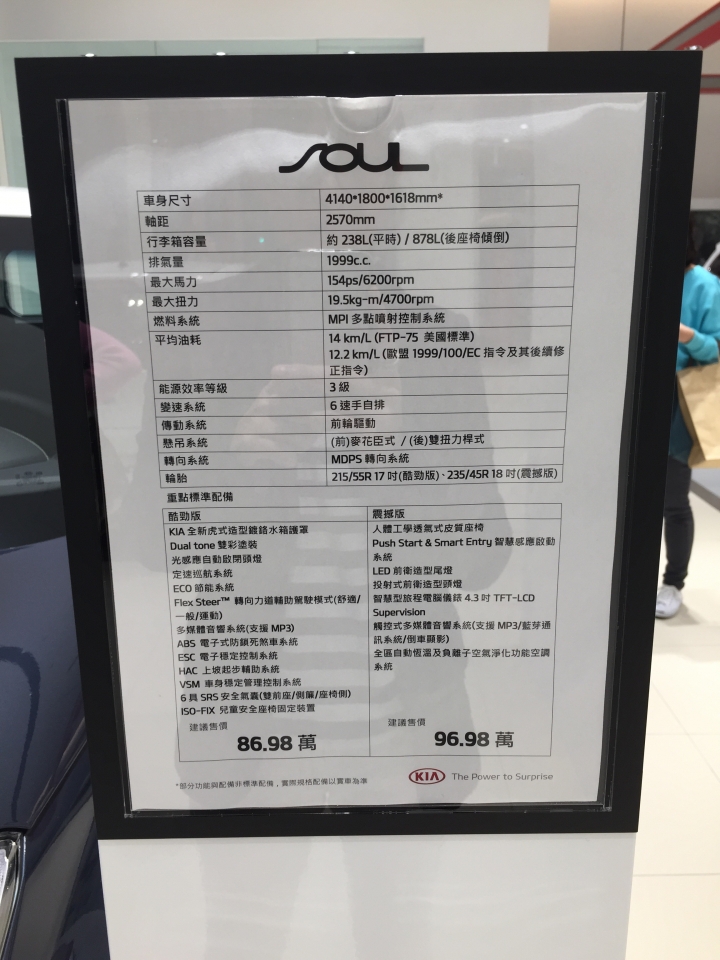 SOUL
車身尺寸 4140*1800*1618mm*
軸距 2570mm
行李箱容量 約 238L(平時) / 878L(後座椅傾倒)
排氣量 1999c.c.
最大馬力 154ps/6200rpm
最大扭力 19.5kg-m/4700rpm
燃料系統 MPI 多點噴射控制系統
平均油耗 14 km/L (FTP-75 美國標準)
12.2 km/L (歐盟 1999/100/EC 指令及其後續修
正指令)
能源效率等級 3 級
變速系統 6 速手自排
傳動系統 前輪驅動
懸吊系統 (前)麥花臣式 / (後)雙扭力桿式
轉向系統 MDPS 轉向系統
輪胎 215/55R 17 吋(酷勁版)、235/45R 18 吋(震撼版)
重點標準配備
酷勁版
KIA 全新虎式造型鍍鉻水箱護罩
Dual tone 雙彩塗裝
光感應自動啟閉頭燈
定速巡航系統
ECO 節能系統
Flex Steer™ 轉向力道輔助駕駛模式(舒適/
一般/運動)
多媒體音響系統(支援 MP3)
ABS 電子式防鎖死煞車系統
ESC 電子穩定控制系統
HAC 上坡起步輔助系統
VSM 車身穩定管理控制系統
6 具 SRS 安全氣囊(雙前座/側簾/座椅側)
ISO-FIX 兒童安全座椅固定裝置
建議售價
86.98 萬
震撼版
人體工學透氣式皮質座椅
Push Start & Smart Entry 智慧感應啟動
系統
LED 前衛造型尾燈
投射式前衛造型頭燈
智慧型旅程電腦儀錶 4.3 吋 TFT-LCD
Supervision
觸控式多媒體音響系統(支援 MP3/藍芽通
訊系統/倒車顯影)
全區自動恆溫及負離子空氣淨化功能空調
系統
建議售價
96.98 萬
*部分功能與配備非標準配備，實際規格配備以實車為準
KIA The Power to Surprise